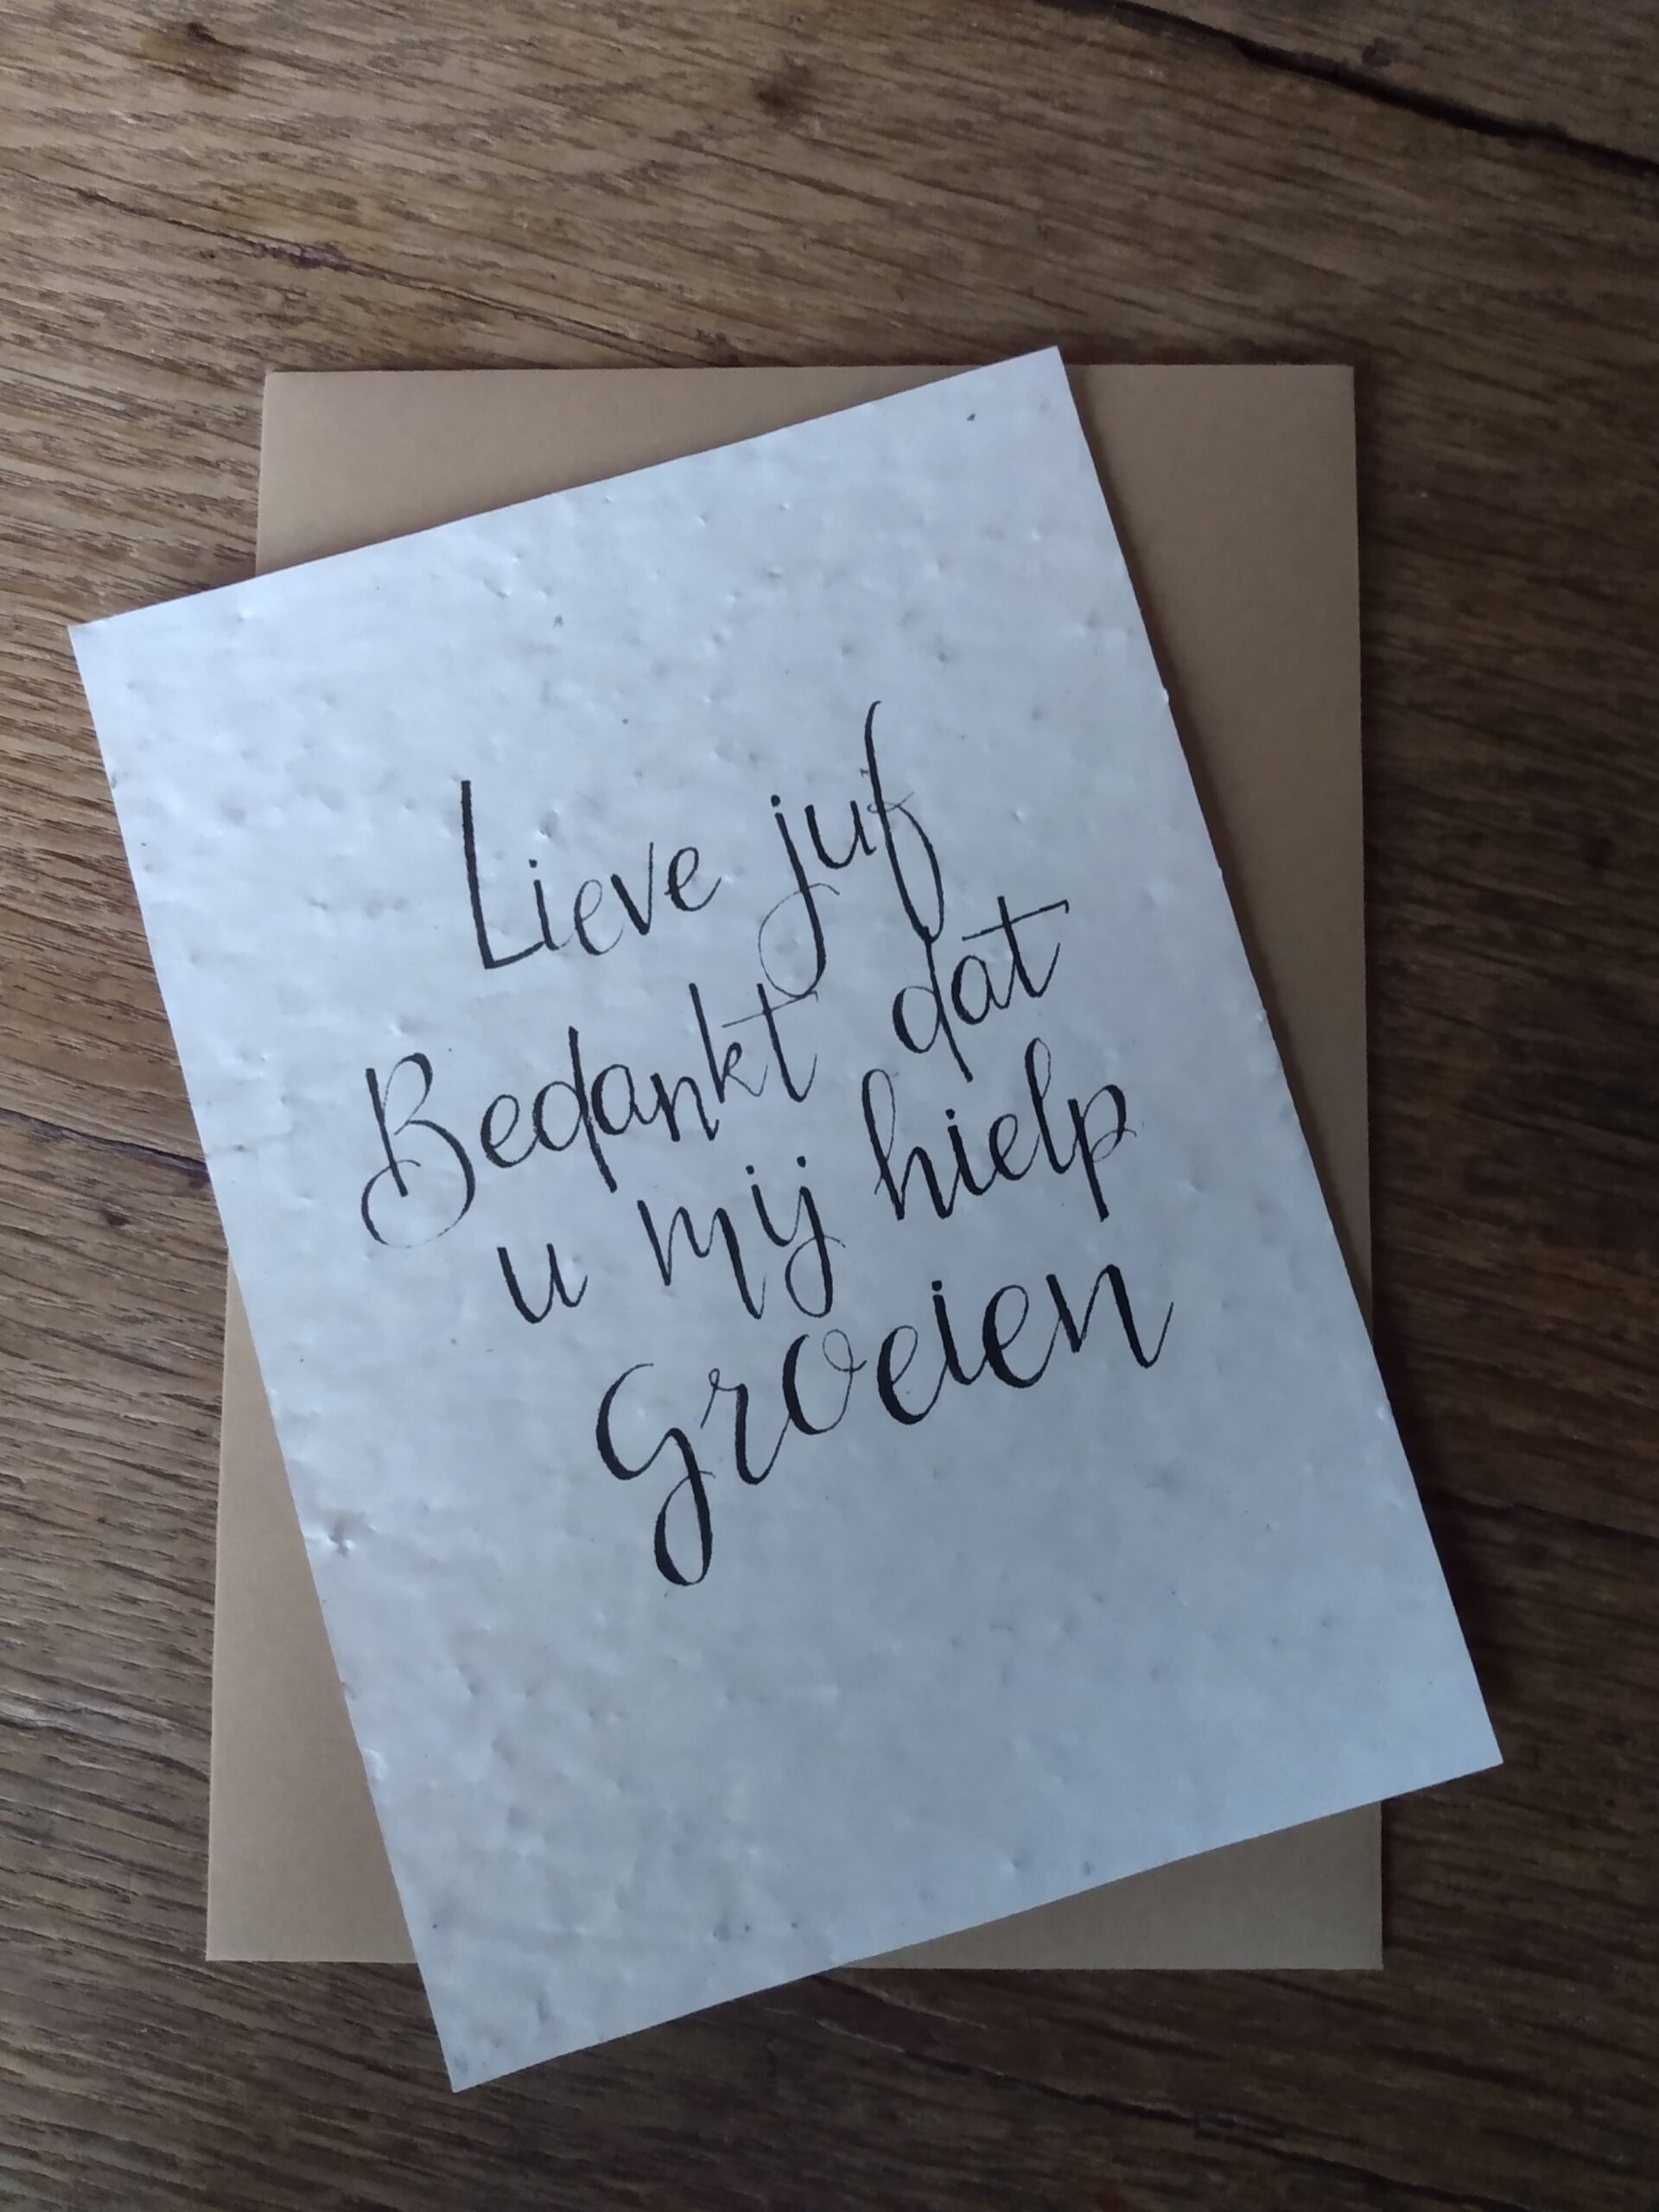 Lieve juf
Bedankt dat
u mij hielp
groeien